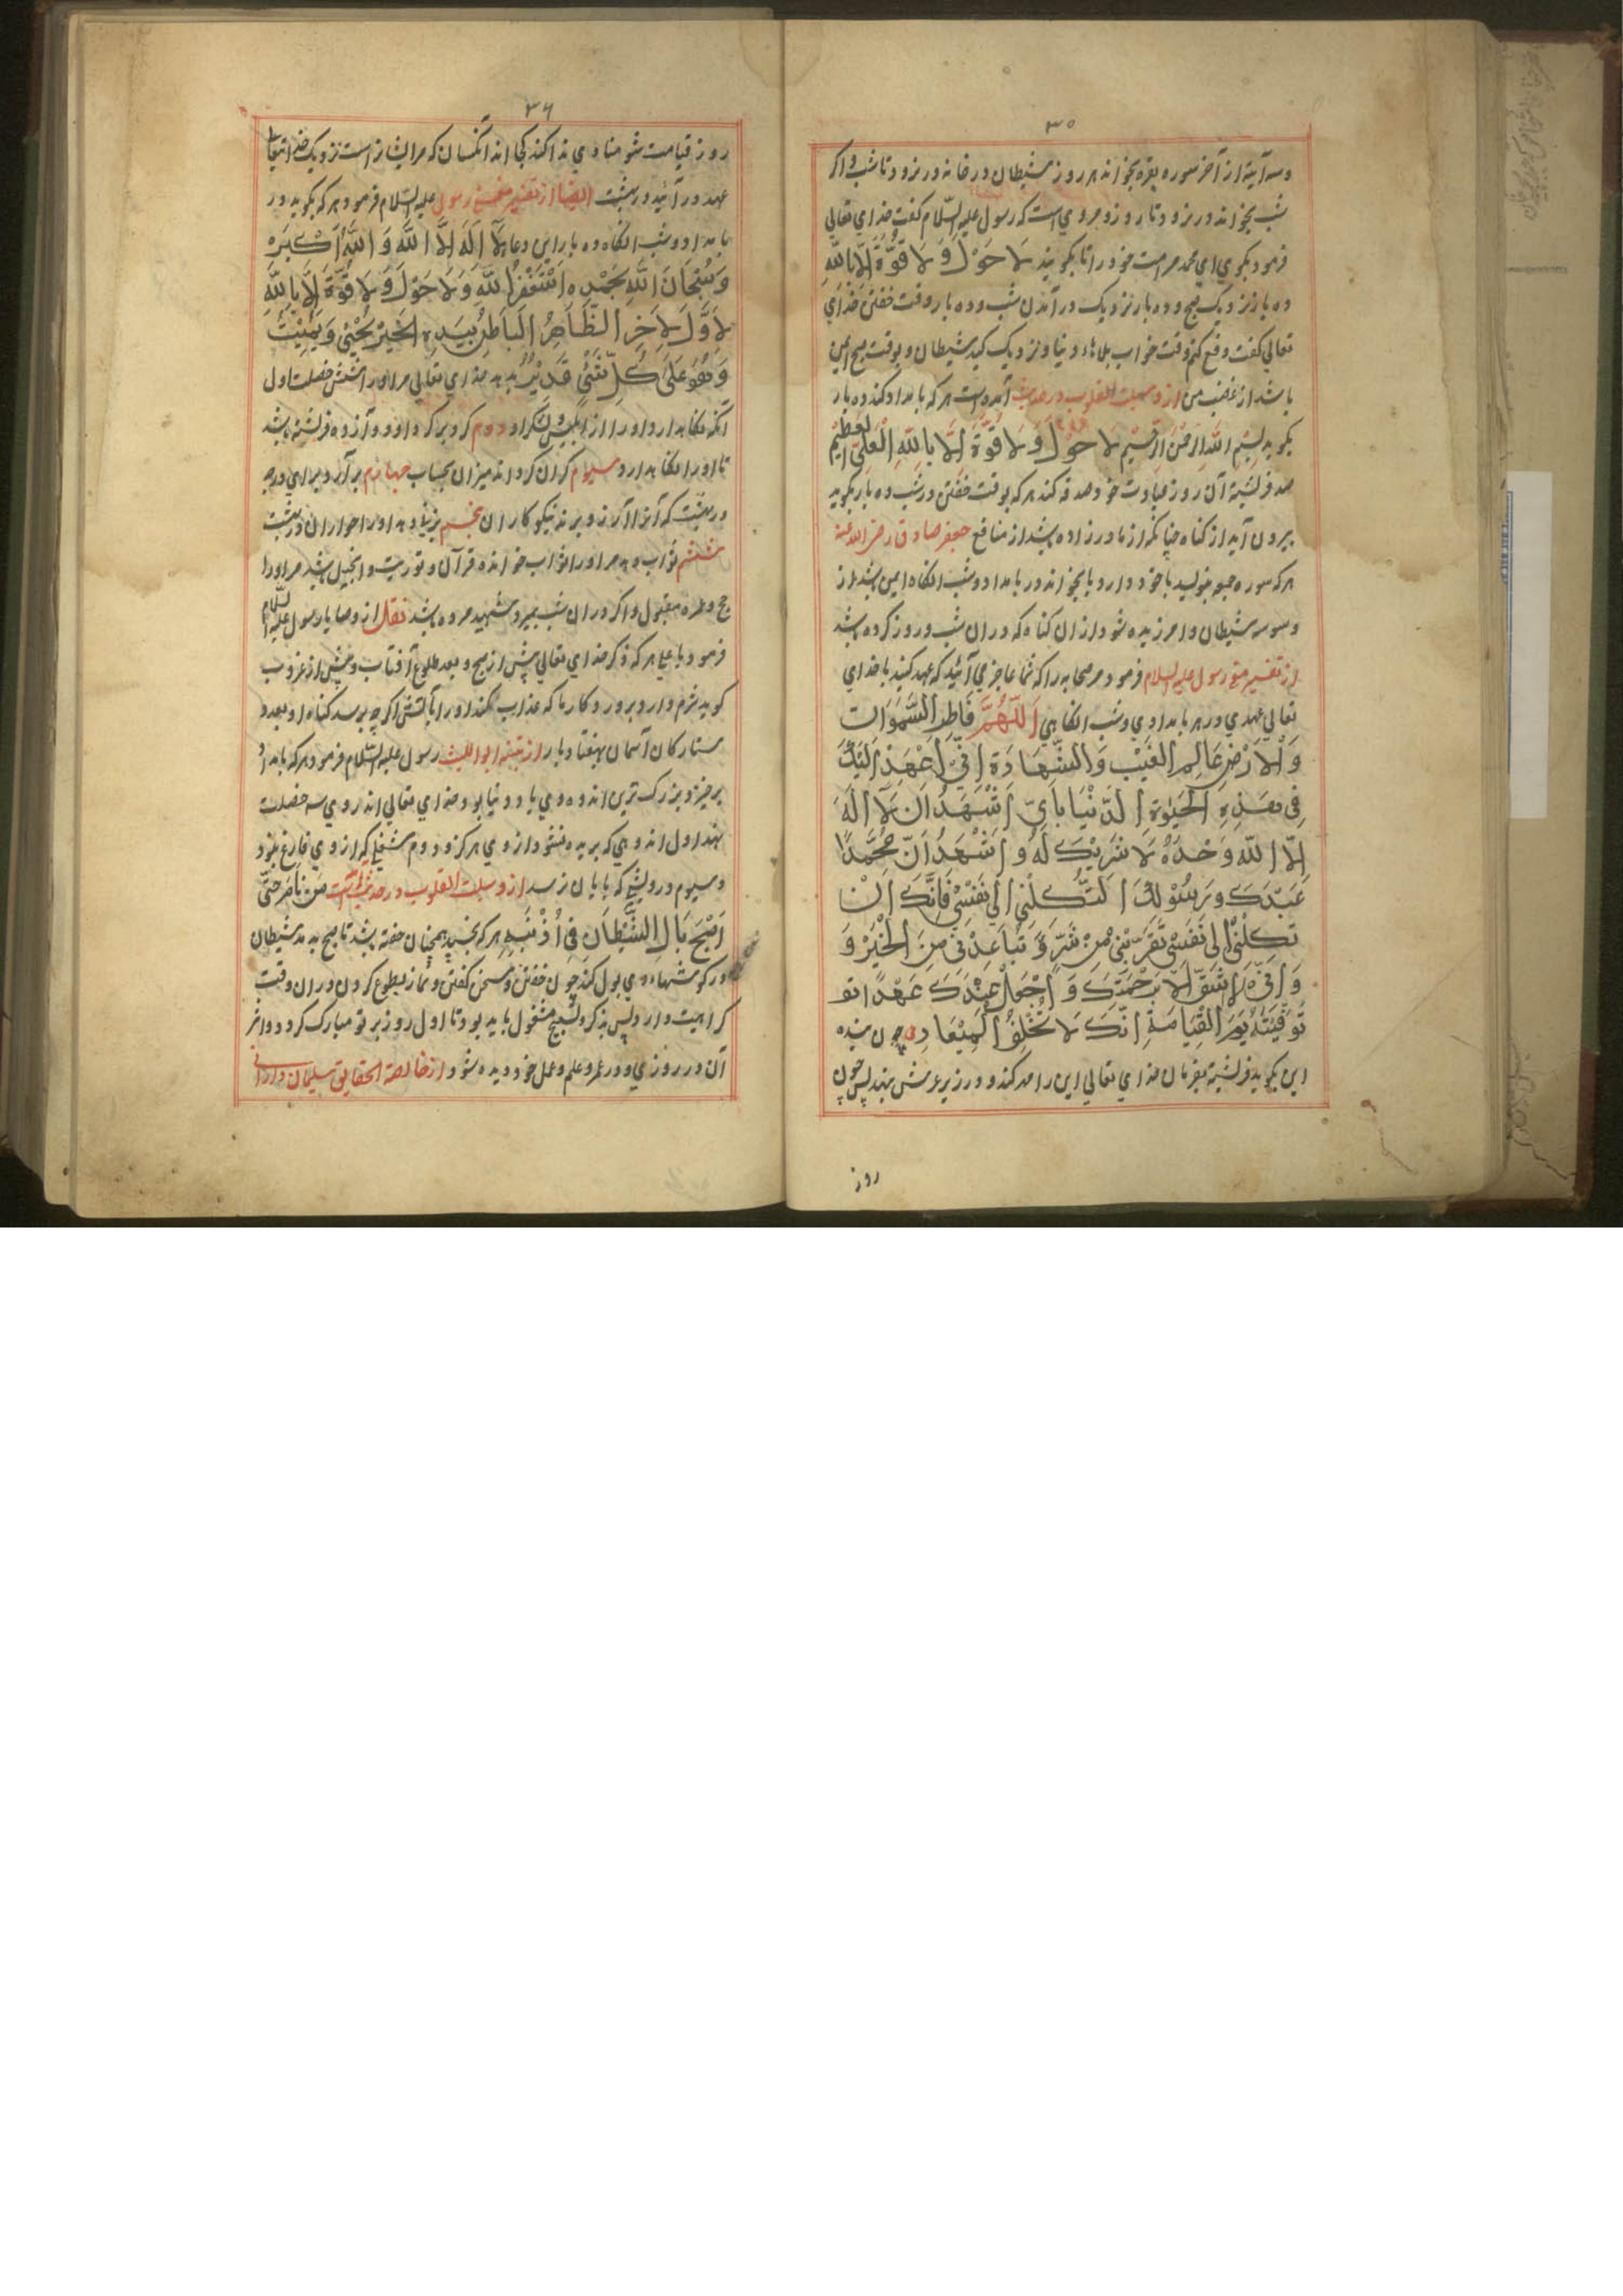 ۳۵
وسه آیة از آخر سوره بقره بخواند هر روز شیطان در خانه در نرود تا شب واکر
شب بخواند در نرود تا روز ومرویست که رسول علیه السّلام کفت خدای تعالی
فرمود بکوی ای محمد مر امت خود را تا بکویند لَا حَوْلَ وَ لَا قُوَّةَ اِلَّا بِاللّهِ
ده بار نزدیک صبح وده بار نزدیک در آمدن شب وده بار وقت خفتن خدای
تعالی کفت دفع کنم وقت خواب بلاهاء دنیا ونزدیک کید شیطان وبوقت صبح ایمن
باشد از غضب من از وسیلت القلوب در حدیث آمده است هر که بامداد کند ده بار
بکوید بِسْمِ اللّهِ الرَّحْمٰنِ الرَّحِیْمِ لَا حَوْلَ وَ لَا قُوَّةَ اِلَّا بِاللّهِ الْعَلِیِّ الْعَظِیْمِ
صد فرشتۀ آن روز عبادت خود صدقه کند هر که بوقت خفتن در شب ده بار بکوید
بیرون آید از کناه چنانکه از مادر زاده باشد از منافع جعفر صادق رضی الله عنه
هر که سوره بنویسد با خود دارد یا بخواند در بامداد وشب انکاه ایمن باشد از
وسوسه شیطان وامرزیده شود از ان کناه که در ان شب وروز کرده باشد
از تفسیر رسول علیه السلام فرمود مر صحابه را که شما عاجز می آئید که عهد کنید با خدای
تعالی عهدی در هر بامدادی وشب انکاهی اَللّهُمَّ فَاطِرَ السَّمٰوَاتِ
وَ الْاَرْضِ عَالِمَ الْغَیْبِ وَالشَّهَادَةِ اِنِّیْ اَعْهَدُ اِلَیْكَ
فِی هٰذِهِ الْحَیٰوةِ الدُّنْیَا بِاَنِّی اَشْهَدُ اَنْ لَآ اِلٰهَ
اِلَّا اللّهُ وَحْدَهُ لَا شَرِیْكَ لَهُ وَ اَشْهَدُ اَنَّ مُحَمَّدًا
عَبْدُكَ وَ رَسُوْلُكَ اِلٰی نَفْسِیْ فَاِنَّكَ اِنْ
تَكِلْنِیْ اِلٰی نَفْسِیْ تُقَرِّبْنِیْ مِنْ شَرٍّ وَ تُبَاعِدْنِیْ مِنَ الْخَیْرِ وَ
وَ اِنِّیْ لَا اَثِقُ اِلَّا بِرَحْمَتِكَ وَ اجْعَلْ عِنْدَكَ عَهْدًا
تُوَفِّیَنَّهُ یَوْمَ الْقِیَامَةِ اِنَّكَ لَا تُخْلِفُ الْمِیْعَادَ چون بنده
این بکوید فرشتۀ بفرمان خدای تعالی این را مهر کند ودر زیر عرش بنهد پس چون
روز
۳۶
روز قیامت شود منادی ندا کند کجا اند آنکسان که مر ایشانراست نزدیک خدایتعالی
عهد در آئید در بهشت ایضا از تفسیر رسول علیه السّلام فرمود هر که بکوید در
بامداد وشب انکاه ده بار این دعا لَآ اِلٰهَ اِلَّا اللّهُ وَ اللّهُ اَكْبَرُ
وَ سُبْحَانَ اللّهِ بِحَمْدِهِ اَسْتَغْفِرُ اللّهَ وَ لَا حَوْلَ وَ لَا قُوَّةَ اِلَّا بِاللّهِ
لْاَوَّلِ لْاٰخِرِ الظَّاهِرُ الْبَاطِنُ بِیَدِهِ الْخَیْرُ یُحْیِیْ وَ یُمِیْتُ
وَ هُوَ عَلٰی كُلِّ شَیْئٍ قَدِیْرٌ بدهد خدای تعالی مر او را شش خصلت اول
آنکه نکاهدارد او را از ابلیس ولشکر او دوم کرد بر کرد او دوازده فرشته باشد
تا او را نکاهدارد سیوم کران کرداند میزان بحساب چهارم بر آرد برای درجه
در بهشت که آنرا آرزو برند نیکوکاران پنجم بدهد او را حوران در بهشت
ششم ثواب دهد مر او را ثواب خواننده قرآن وتوریت وانجیل باشد مر او را
حج وعمره مقبول واکر در ان شب بمیرد شهید مرده باشد نقل از وصایا رسول علیه السّلام
فرمود یا علی هر که ذکر خدای تعالی پیش از صبح وبعد طلوع آفتاب وپیش از غروب
کوید شرم دارد پرورد کار ما که عذاب کند او را بآتش اکر چه برسد کناه او بعدد
ستارکان آسمان هفتاد بار از تنبیه ابو اللیث رسول علیه السّلام فرمود هر که بامداد
برخیزد بزرک ترین اندوه وی یاد دنیا بود خدای تعالی اندر وی سه خصلت
نهد اول اندوهی که بریده نشود از وی هر کز ودوم شغلی که از وی فارغ نبود
وسیوم درویشی که بپایان نرسد از وسیلت القلوب در حدیث است مَنْ نَامَ حَتّٰی
اَصْبَحَ بَالَ الشَّیْطَانُ فِی اُذُنَیْهِ هر که بخسپد همچنان خفته باشد تا صبح بدمد شیطان
در کوشهاء وی بول کند چون خفتن وسخن کفتن ونماز بطلوع کردن در ان وقت
کراهیت دارد پس بذکر وتسبیح مشغول باید بود تا اول روز بر تو مبارک کردد واثر
آن در روزی ودر عمر وعلم وعمل خود دیده شود از خالصة الحقایق سلیمان دارانی